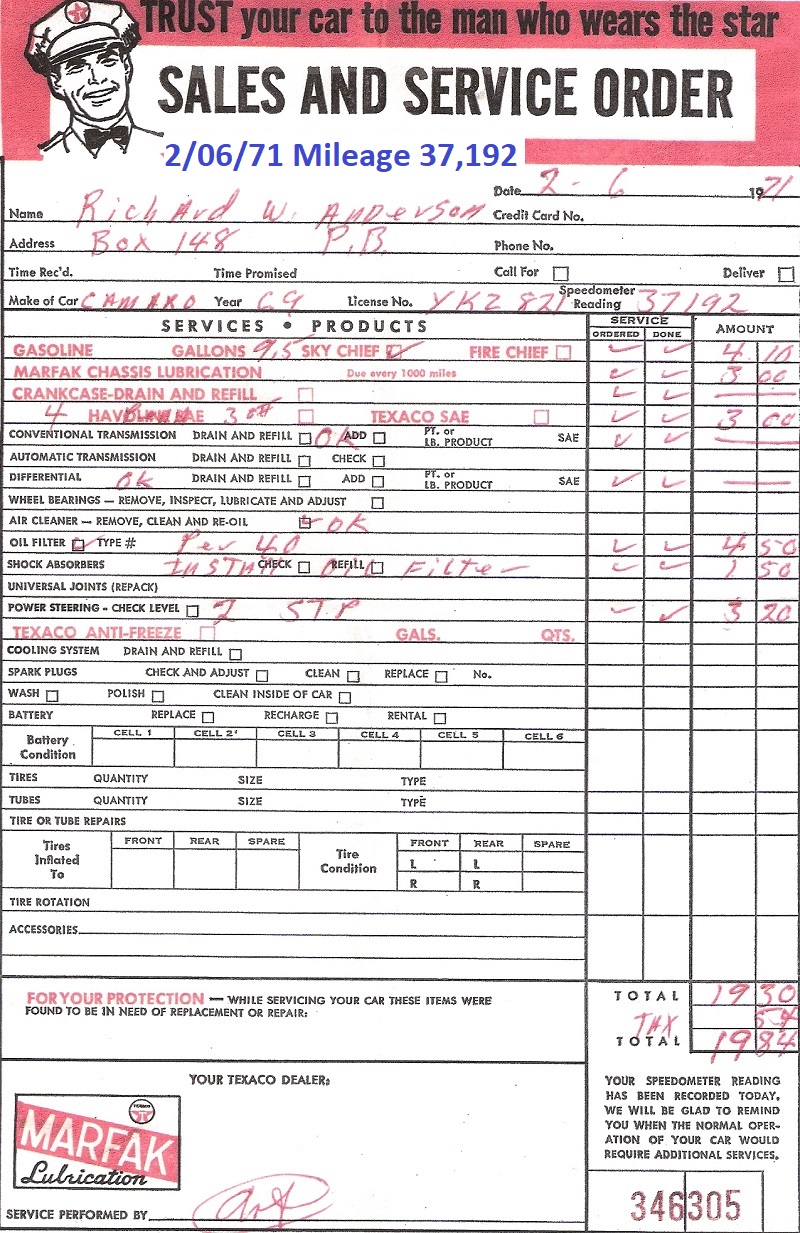 TRUST your car to the man who wears the star
SALES AND SERVICE ORDER
2/06/71 Mileage 37,192
Date 2 - 6 1971
Name Richard W. Anderson Credit Card No.
Address Box 148 P.B. Phone No.
Time Rec'd. Time Promised Call For Deliver
Make of Car CAMARO Year 69 License No. YKZ 821 Speedometer Reading 37192
SERVICES • PRODUCTS SERVICE ORDERED DONE AMOUNT
GASOLINE GALLONS 9,5 SKY CHIEF FIRE CHIEF 4 10
MARFAK CHASSIS LUBRICATION Due every 1000 miles 3 00
CRANKCASE-DRAIN AND REFILL
4 HAVOLINE SAE 30 TEXACO SAE 3 00
CONVENTIONAL TRANSMISSION DRAIN AND REFILL OK ADD PT. or LB. PRODUCT SAE
AUTOMATIC TRANSMISSION DRAIN AND REFILL CHECK
DIFFERENTIAL OK DRAIN AND REFILL ADD PT. or LB. PRODUCT SAE
WHEEL BEARINGS — REMOVE, INSPECT, LUBRICATE AND ADJUST
AIR CLEANER — REMOVE, CLEAN AND RE-OIL OK
OIL FILTER TYPE # Per 40 4 50
SHOCK ABSORBERS CHECK REFILL INSTALL OIL Filter 1 50
UNIVERSAL JOINTS (REPACK)
POWER STEERING - CHECK LEVEL 2 STP 3 20
TEXACO ANTI-FREEZE GALS. QTS.
COOLING SYSTEM DRAIN AND REFILL
SPARK PLUGS CHECK AND ADJUST CLEAN REPLACE No.
WASH POLISH CLEAN INSIDE OF CAR
BATTERY REPLACE RECHARGE RENTAL
Battery Condition CELL 1 CELL 2 CELL 3 CELL 4 CELL 5 CELL 6
TIRES QUANTITY SIZE TYPE
TUBES QUANTITY SIZE TYPE
TIRE OR TUBE REPAIRS
Tires Inflated To FRONT REAR SPARE Tire Condition FRONT REAR SPARE
L L
R R
TIRE ROTATION
ACCESSORIES
FOR YOUR PROTECTION — WHILE SERVICING YOUR CAR THESE ITEMS WERE
FOUND TO BE IN NEED OF REPLACEMENT OR REPAIR:
TOTAL 19 30
TAX 54
TOTAL 19 84
YOUR TEXACO DEALER:
YOUR SPEEDOMETER READING
HAS BEEN RECORDED TODAY.
WE WILL BE GLAD TO REMIND
YOU WHEN THE NORMAL OPER-
ATION OF YOUR CAR WOULD
REQUIRE ADDITIONAL SERVICES.
TEXACO
MARFAK
Lubrication
SERVICE PERFORMED BY Art
346305